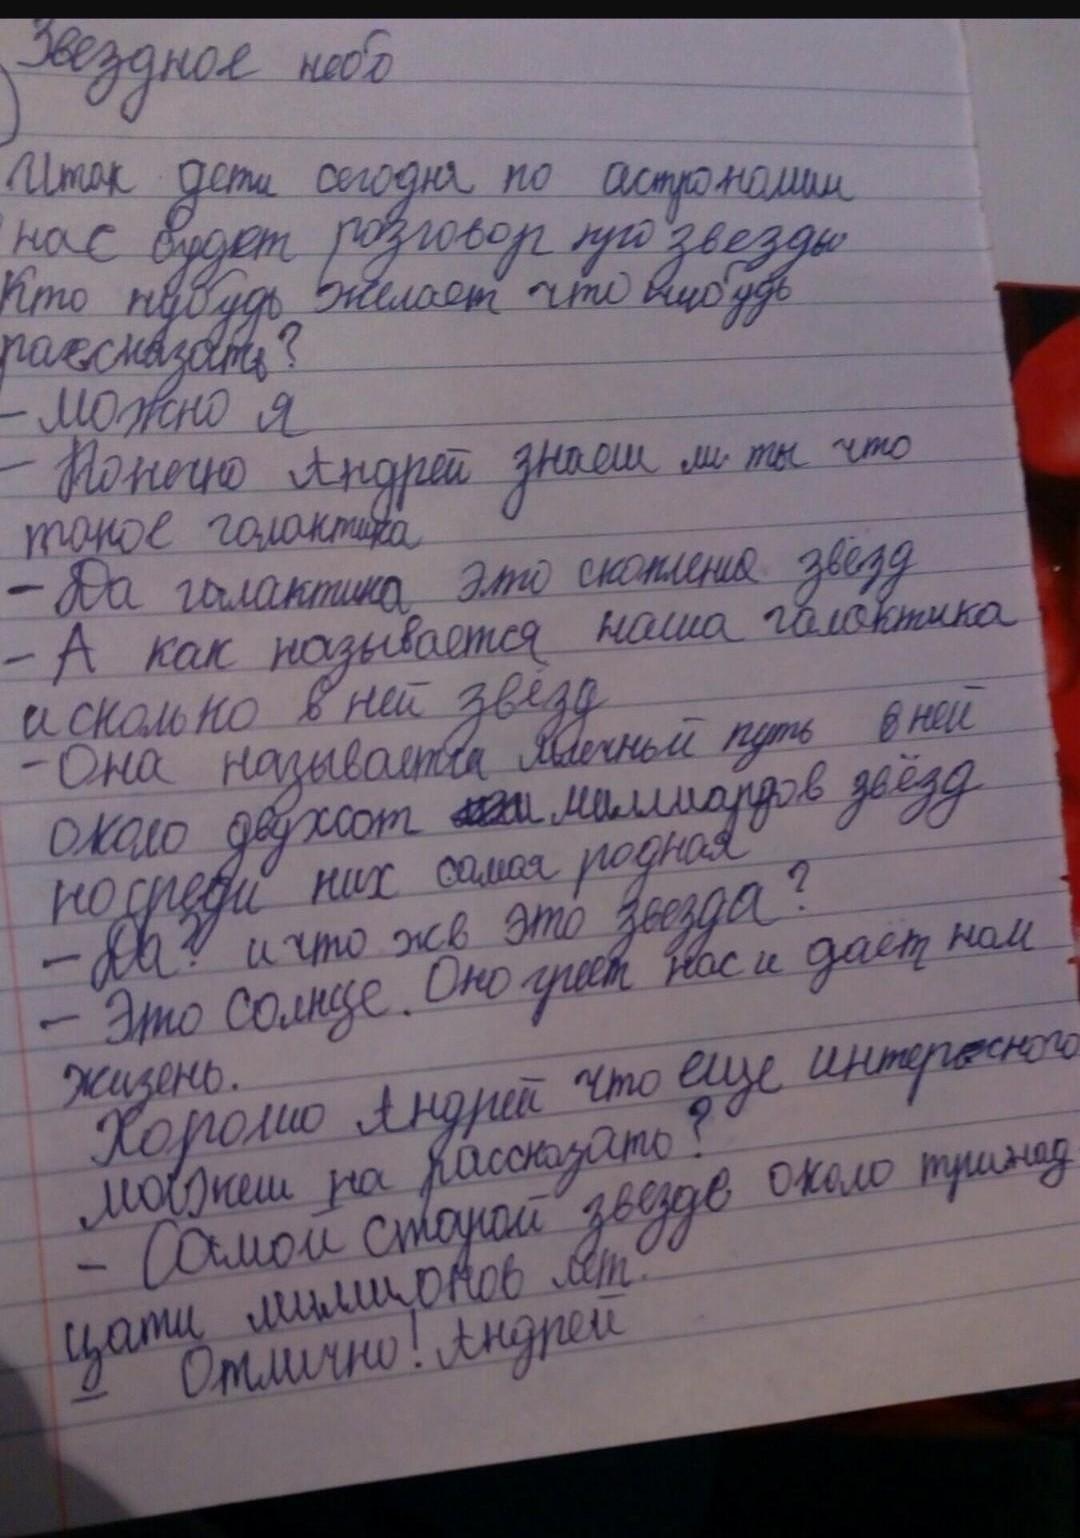 Звездное небо
Итак дети сегодня по астрономии
нас будет разговор про звезды
Кто нубудь желает что нибудь
рассказать?
- Можно я
- Конечно Андрей знаеш ли ты что
такое галактика
- Да галактика это скопления звёзд
- А как называется наша галактика
и сколько в ней звёзд
- Она называется Млечный путь в ней
около двухсот миллиардов звёзд
но среди них самая родная
- Да? и что жв это звезда?
- Это Солнце. Оно греет нас и даёт нам
жизень.
Хорошо Андрей что еще интересного
можеш на рассказать?
- Самой старой звезде около тринад
цати миллионов лет.
- Отлично! Андрей